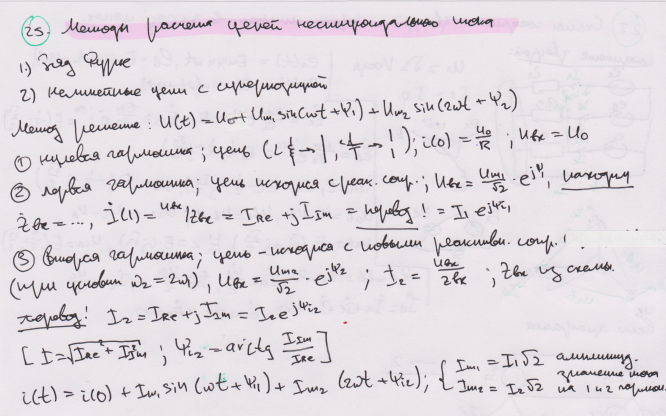 25. Методы расчета цепей несинусоидального тока
1.) Ряд Фурье
2) Нелинейные цепи с суперпозицией
Метод решение: U(t) = U₀ + Uₘ₁ sin(ωt + Ψ₁) + Uₘ₂ sin(2ωt + Ψ₂)
① нулевая гармоника; цепь (L → |, C → ); i(0) = U₀/R; Uвх = U₀
② первая гармоника; цепь исходная с реак. сопр.; Uвх = Uₘ₁/√2 · e^{jΨ₁}, находим
Żвх = ..., İ(1) = Uвх/Zвх = I_Re + jI_Im = перевод! = I₁e^{jΨi₁}
③ Вторая гармоника; цепь - исходная с новыми реактивн. сопр.!
(при условии ω₂ = 2ω₁); Uвх = Uₘ₂/√2 · e^{jΨ₂}; İ₂ = Uвх/Zвх; Zвх из схемы.
перевод! I₂ = I_Re + jI_Im = I₂e^{jΨi₂}
[I = √(I_Re² + I_Im²); Ψi₂ = arctg I_Im/I_Re]
i(t) = i(0) + Iₘ₁ sin(ωt + Ψi₁) + Iₘ₂ (2ωt + Ψi₂); { Iₘ₁ = I₁√2 амплитуд.
Iₘ₂ = I₂√2 значение тока
на 1 и 2 гармон.